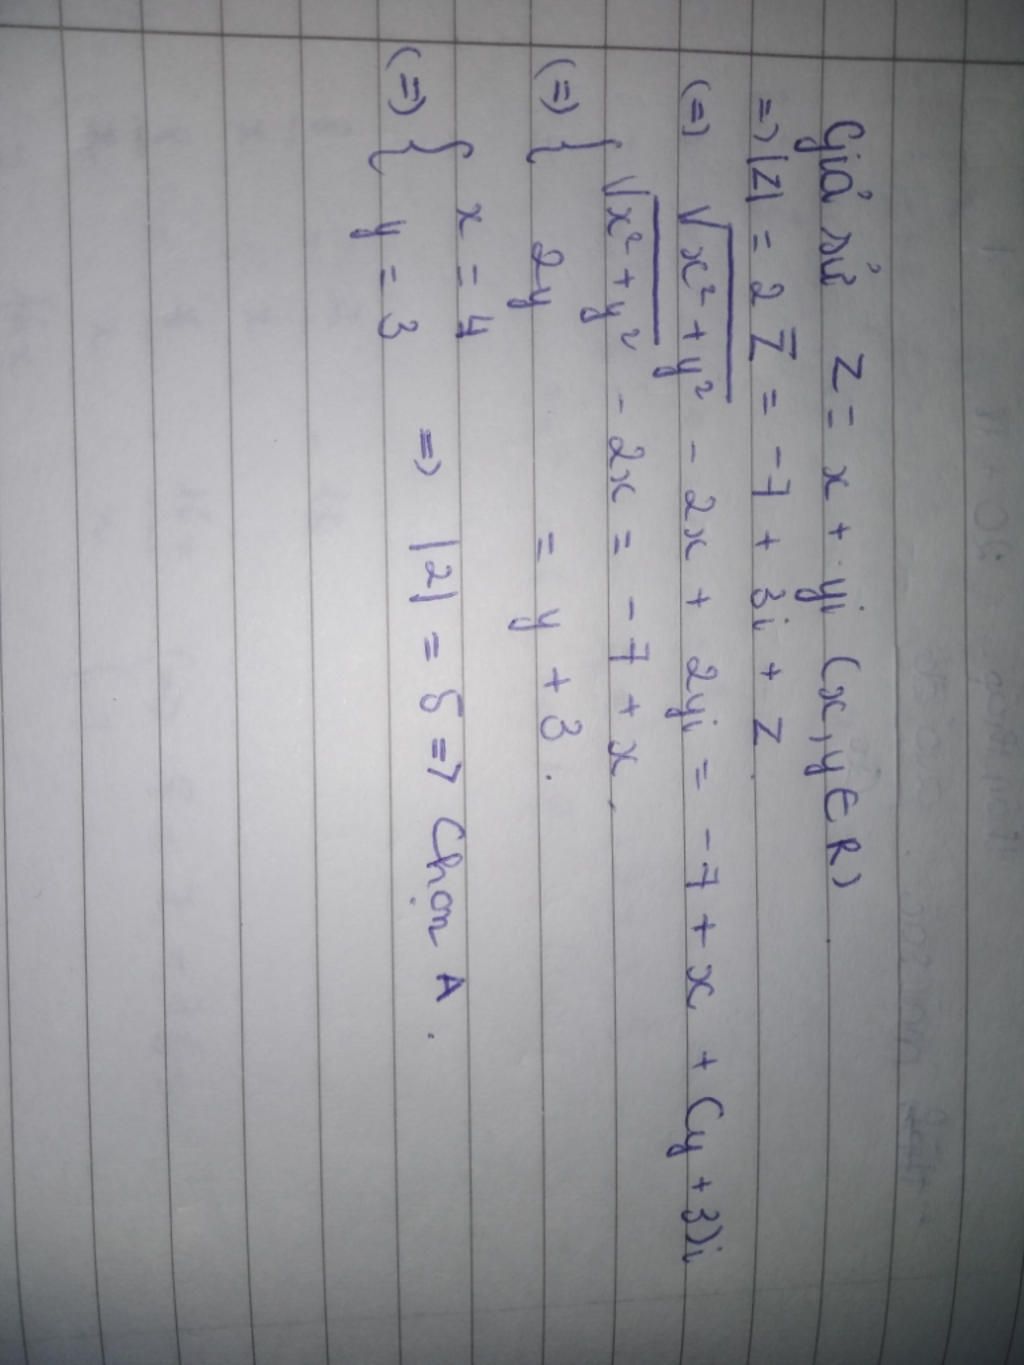 Giả sử z = x + yi (x, y ∈ R)
=> |z| = 2 z̅ = -7 + 3i + z
(=) √x² + y² - 2x + 2yi = -7 + x + (y + 3)i
(=) { √x² + y² - 2x = -7 + x.
2y = y + 3.
(=) { x = 4
y = 3 => |2| = 5 => Chọn A.